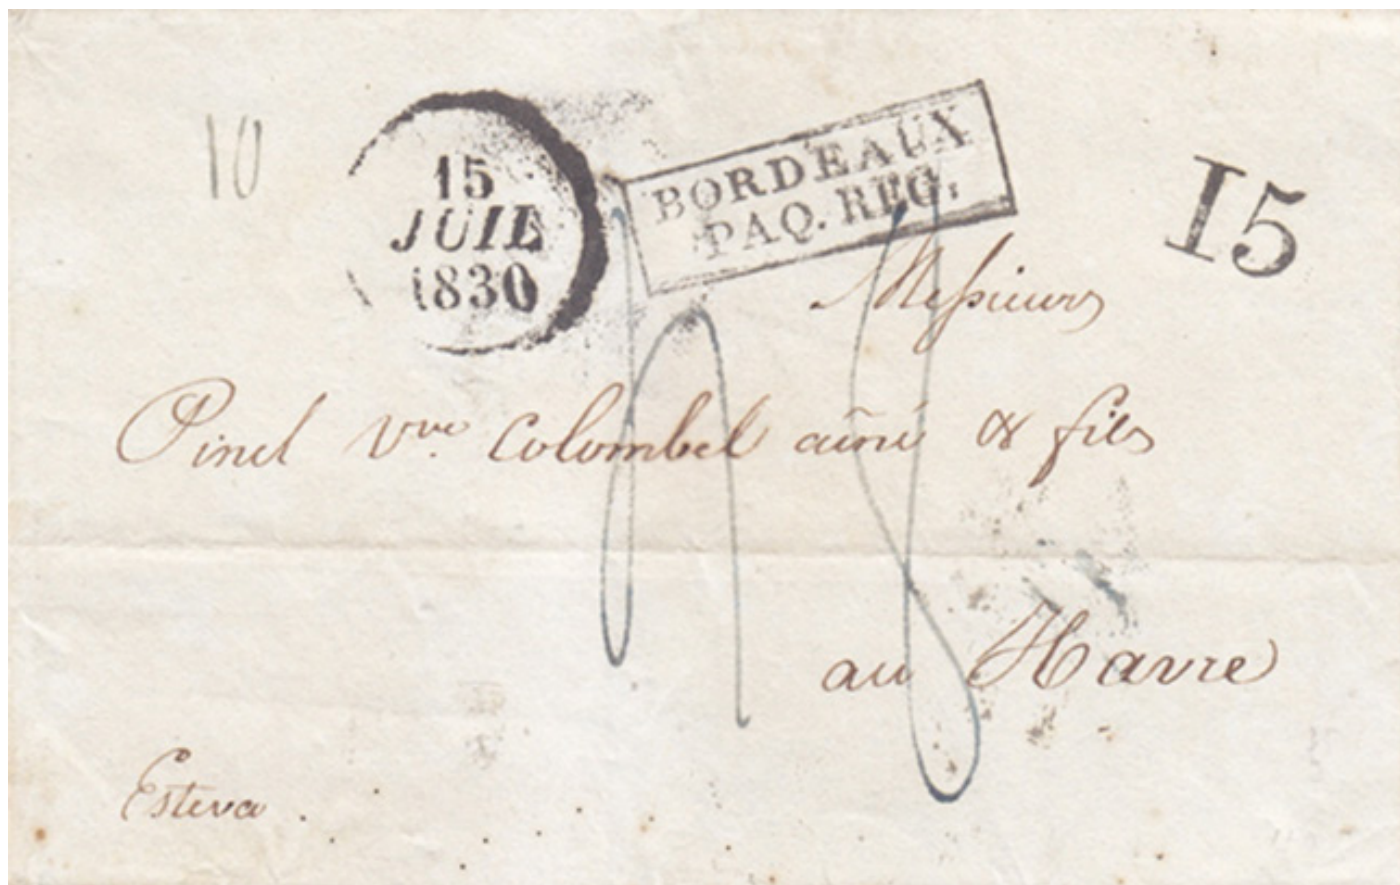 10
15
JUIL
1830
BORDEAUX
PAQ. REG.
15
Messieurs
Pinel Vve Colombel aîné & fils
au Havre
Esteva.